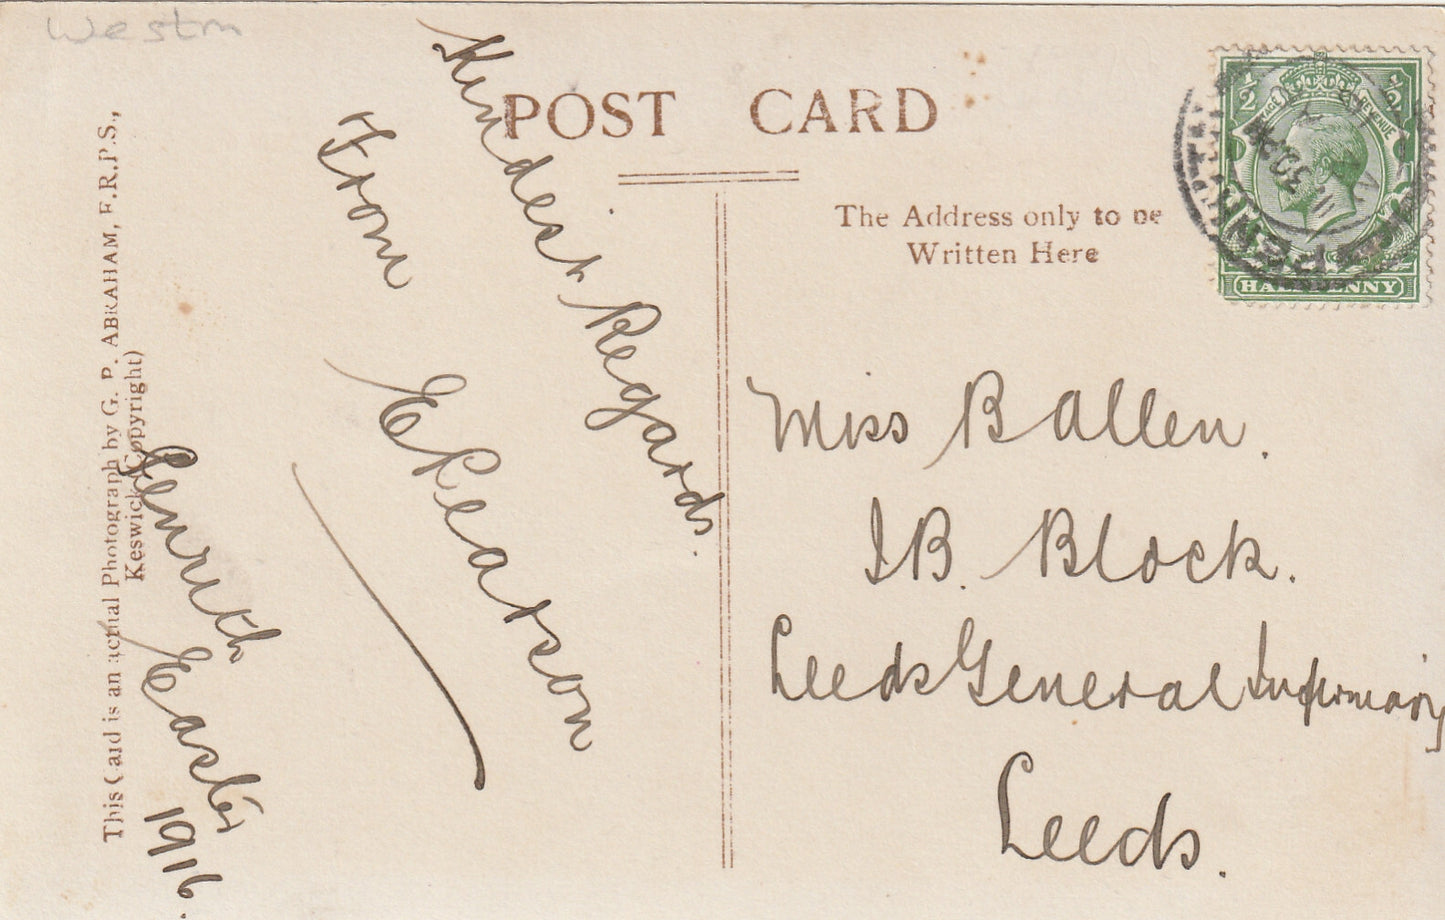 Westm
POST CARD
The Address only to be
Written Here
HALFPENNY
This Card is an actual Photograph by G. P. ABRAHAM, F.R.P.S.,
Keswick (Copyright)
Kindest Regards.
From
E Pearson
Penrith
Easter
1916.
Miss B Allen.
I B. Block.
Leeds General Infirmary
Leeds.